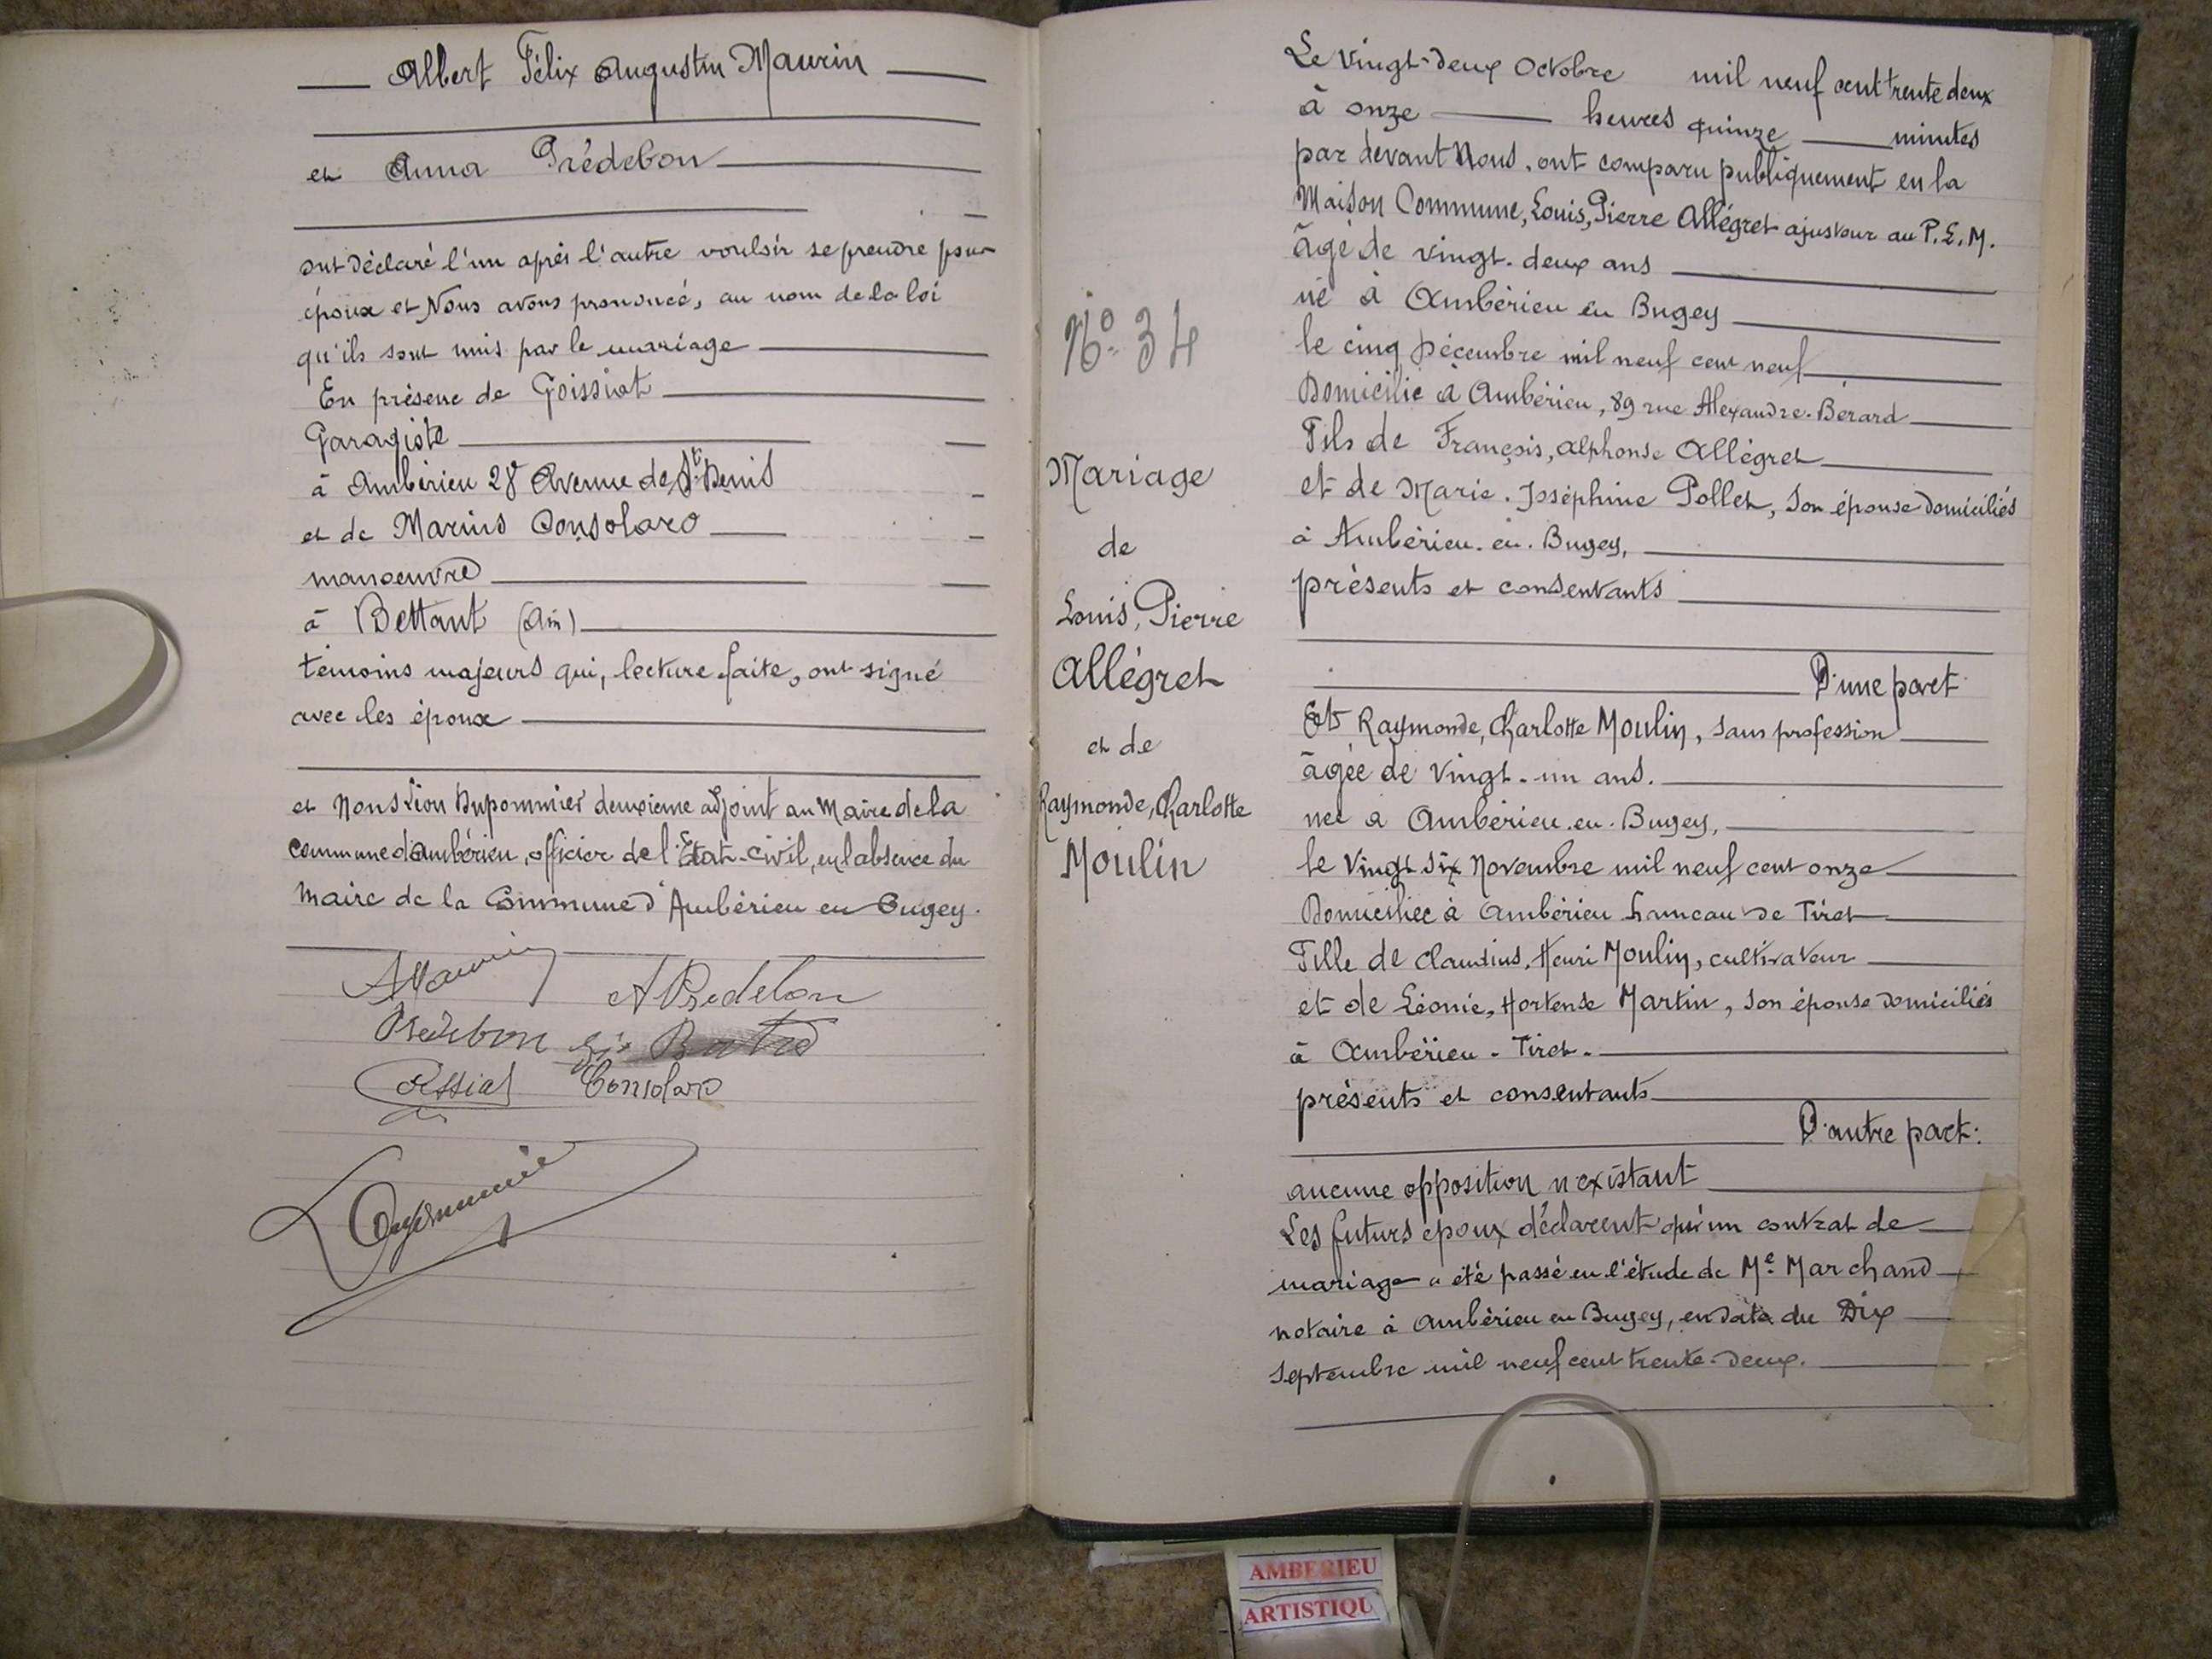 Albert Félix Augustin Maurin
et Anna Prédebon
ont déclaré l'un après l'autre vouloir se prendre pour
époux et Nous avons prononcé, au nom de la loi
qu'ils sont unis par le mariage
En présence de Goissiat
Garagiste
à Ambérieu 28 Avenue de St Denis
et de Marius Consolaro
manoeuvre
à Bettant (Ain)
témoins majeurs qui, lecture faite, ont signé
avec les époux
et Nous Léon Dupommier deuxième adjoint au Maire de la
commune d'Ambérieu, officier de l'Etat-civil, en l'absence du
Maire de la Commune d'Ambérieu en Bugey.
AMaurin
A Predebon
Predebon
Consolaro
N° 34
Mariage
de
Louis, Pierre
Allégret
et de
Raymonde, Charlotte
Moulin
Le vingt-deux Octobre mil neuf cent trente deux
à onze heures quinze minutes
par devant Nous, ont comparu publiquement en la
Maison Commune, Louis, Pierre Allégret ajusteur au P.L.M.
âgé de vingt-deux ans
né à Ambérieu en Bugey
le cinq Décembre mil neuf cent neuf
Domicilié à Ambérieu, 89 rue Alexandre-Bérard
Fils de François, Alphonse Allégret
et de Marie-Joséphine Pollet, son épouse domiciliés
à Ambérieu-en-Bugey,
présents et consentants
D'une part
Et Raymonde, Charlotte Moulin, sans profession
âgée de vingt-un ans.
née à Ambérieu-en-Bugey,
le vingt six Novembre mil neuf cent onze
Domiciliée à Ambérieu hameau de Tiret
Fille de Claudius, Henri Moulin, cultivateur
et de Léonie, Hortense Martin, son épouse domiciliés
à Ambérieu-Tiret.
présents et consentants
D'autre part:
aucune opposition n'existant
Les futurs époux déclarent qu'un contrat de
mariage a été passé en l'étude de Me Marchand
notaire à Ambérieu en Bugey, en date du Dix
Septembre mil neuf cent trente-deux.
AMBERIEU
ARTISTIQU